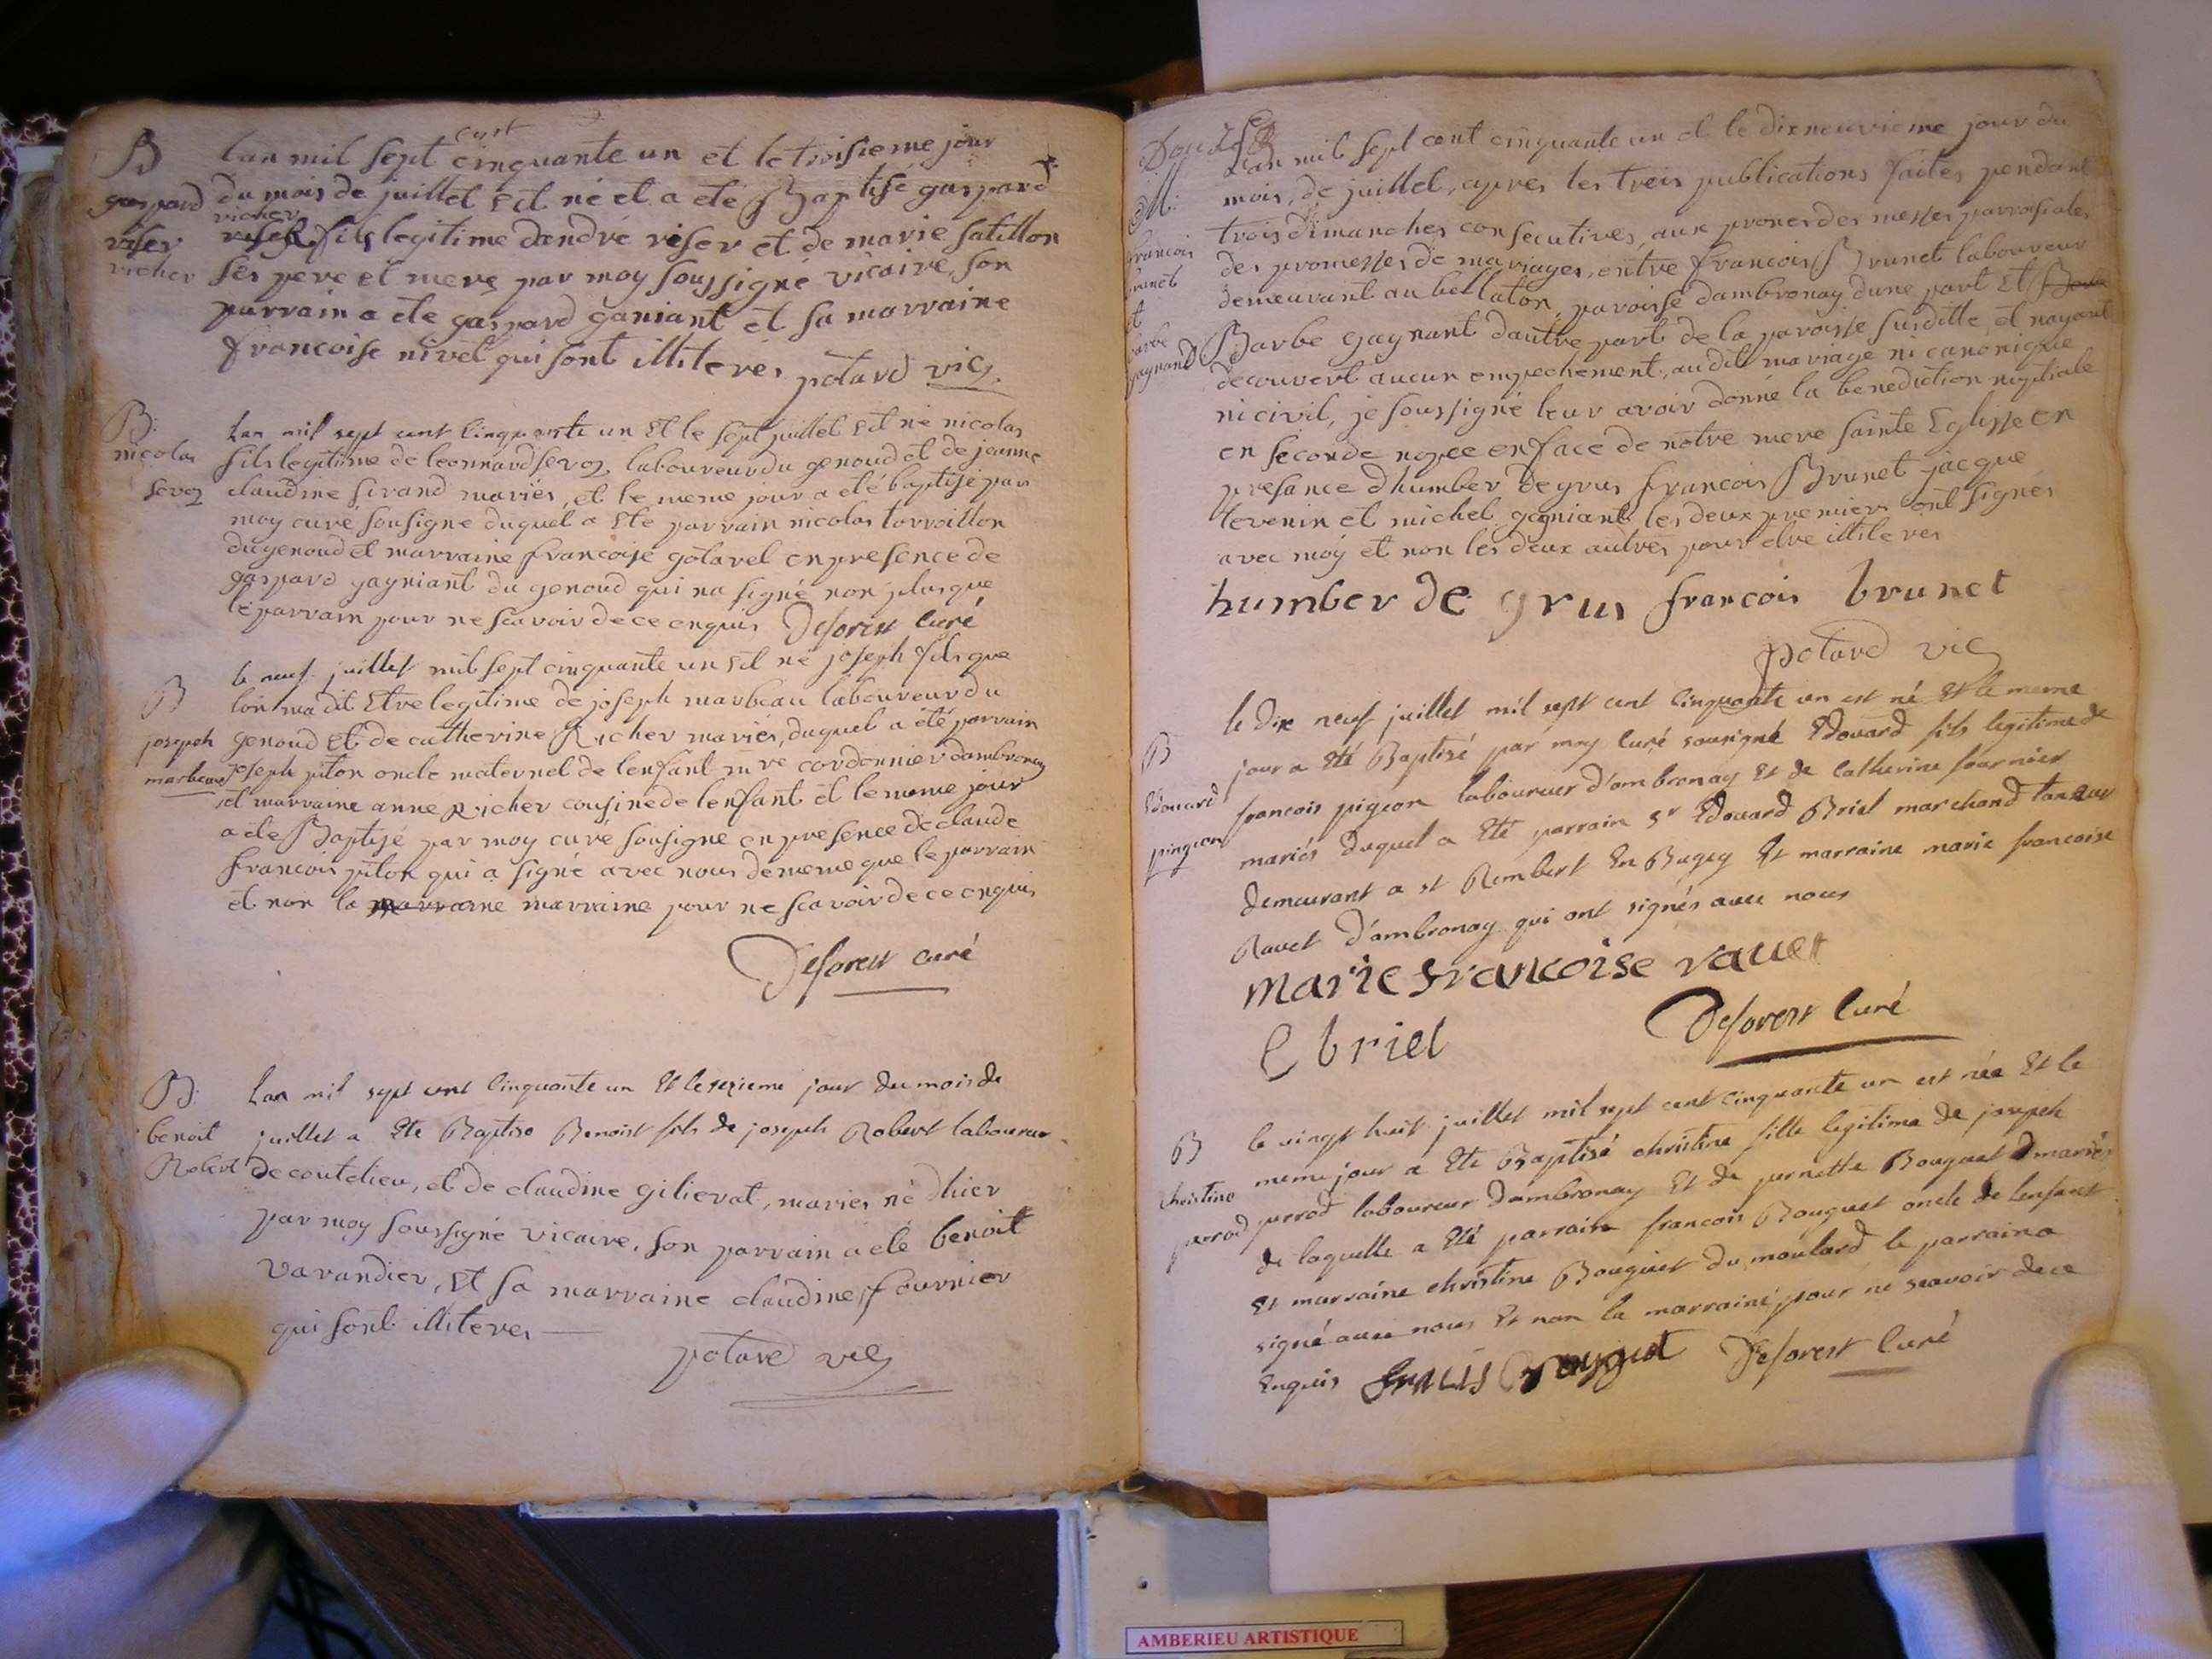 B
gaspard
viser
richer
cent
lan mil sept cinquante un et le troisieme jour
du mois de juillet Est né et a eté Baptisé gaspard
richer
viser fils legitime dandré viser et de marie satillon
ses pere et mere par moy soussigné vicaire, son
parrain a ete gaspard ganiant et sa marraine
francoise nivet qui sont illiterés potard vic
B.
nicolas
servoz
Lan mil sept cent Cinquante un Et le sept juillet Est né nicolas
fils legitime de leonnard servoz laboureur du genoud et de jeanne
claudine sirand mariés, et le meme jour a eté baptisé par
moy curé sousigne duquel a Ete parrain nicolas torroillon
du genoud et marraine francoise gotarel en presence de
gaspard gagniant du genoud qui na signé non plus que
le parrain pour ne scavoir de ce enquis Deforest Curé
B
joseph
marbeau
le neuf juillet mil sept cinquante un Est né joseph fils que
lon ma dit Etre legitime de joseph marbeau laboureur du
genoud Et de catherine Richer mariés, duquel a été parrain
joseph piton oncle maternel de lenfant mre cordonnier dambronay
et marraine anne Richer cousine de lenfant et le meme jour
a ete Baptisé par moy curé sousigne en presence de claude
francois piton qui a signé avec nous de meme que le parrain
et non la marraine marraine pour ne scavoir de ce enquis
Deforest curé
B.
benoit
Robert
Lan mil sept cent Cinquante un Et le sezieme jour du mois de
juillet a Ete Baptise Benoist fils de joseph Robert laboureur
de coutelieu, et de claudine gilierat, mariés né dhier
par moy soussigné vicaire, son parrain a eté benoit
varandier, Et sa marraine claudine fournier
qui sont illiteres
potard vic
M.
francois
brunet
et
barbe
gagnand
Lan mil sept cent cinquante un et le dixneuvieme jour du
mois, de juillet, apres les trois publications faites pendant
trois dimanches consecutives, aux prones des messes parroisiales
des promesses de mariages, entre francois Brunet laboureur
demeurant au bellaton, paroisse dambronay dune part Et
Barbe gagnant dautre part de la paroisse susditte et nayant
decouvert aucun empechement, au dit mariage ni canonique
ni civil, je soussigné leur avoir donné la benediction nuptiale
en seconde nopce en face de notre mere sainte Eglisse en
presance dhumber de grus francois Brunet jacque
tevenin et michel gagniant les deux premiers ont signés
avec moy et non les deux autres pour etre illiteres
humber de grus francois brunet
potard vic
B
Edouard
pingeon
le Dix neuf juillet mil sept cent Cinquante un est né Et le meme
jour a Eté Baptisé par moy Curé sousigné Edouard fils legitime de
francois pigeon laboureur d'ambronay Et de Catherine fournier
mariés duquel a Eté parrain sr Edouard Briel marchand tanneur
demeurant a st Rambert En Bugey Et marraine marie francoise
Ravet d'ambronay qui ont signés avec nous
marie francoise ravet
E briel
Deforest Curé
B
christine
perrod
le vingt huit juillet mil sept cent cinquante un est née Et le
meme jour a Ete Baptisé christine fille legitime de joseph
perrod laboureur dambronay Et de pernette Bouguet mariés
de laquelle a Eté parrain francois Bouguet oncle de lenfant
Et marraine christine Bouguet du moulard le parrain a
signé avec nous Et non la marraine pour ne scavoir de ce
Enquis Deforest Curé
AMBERIEU ARTISTIQUE